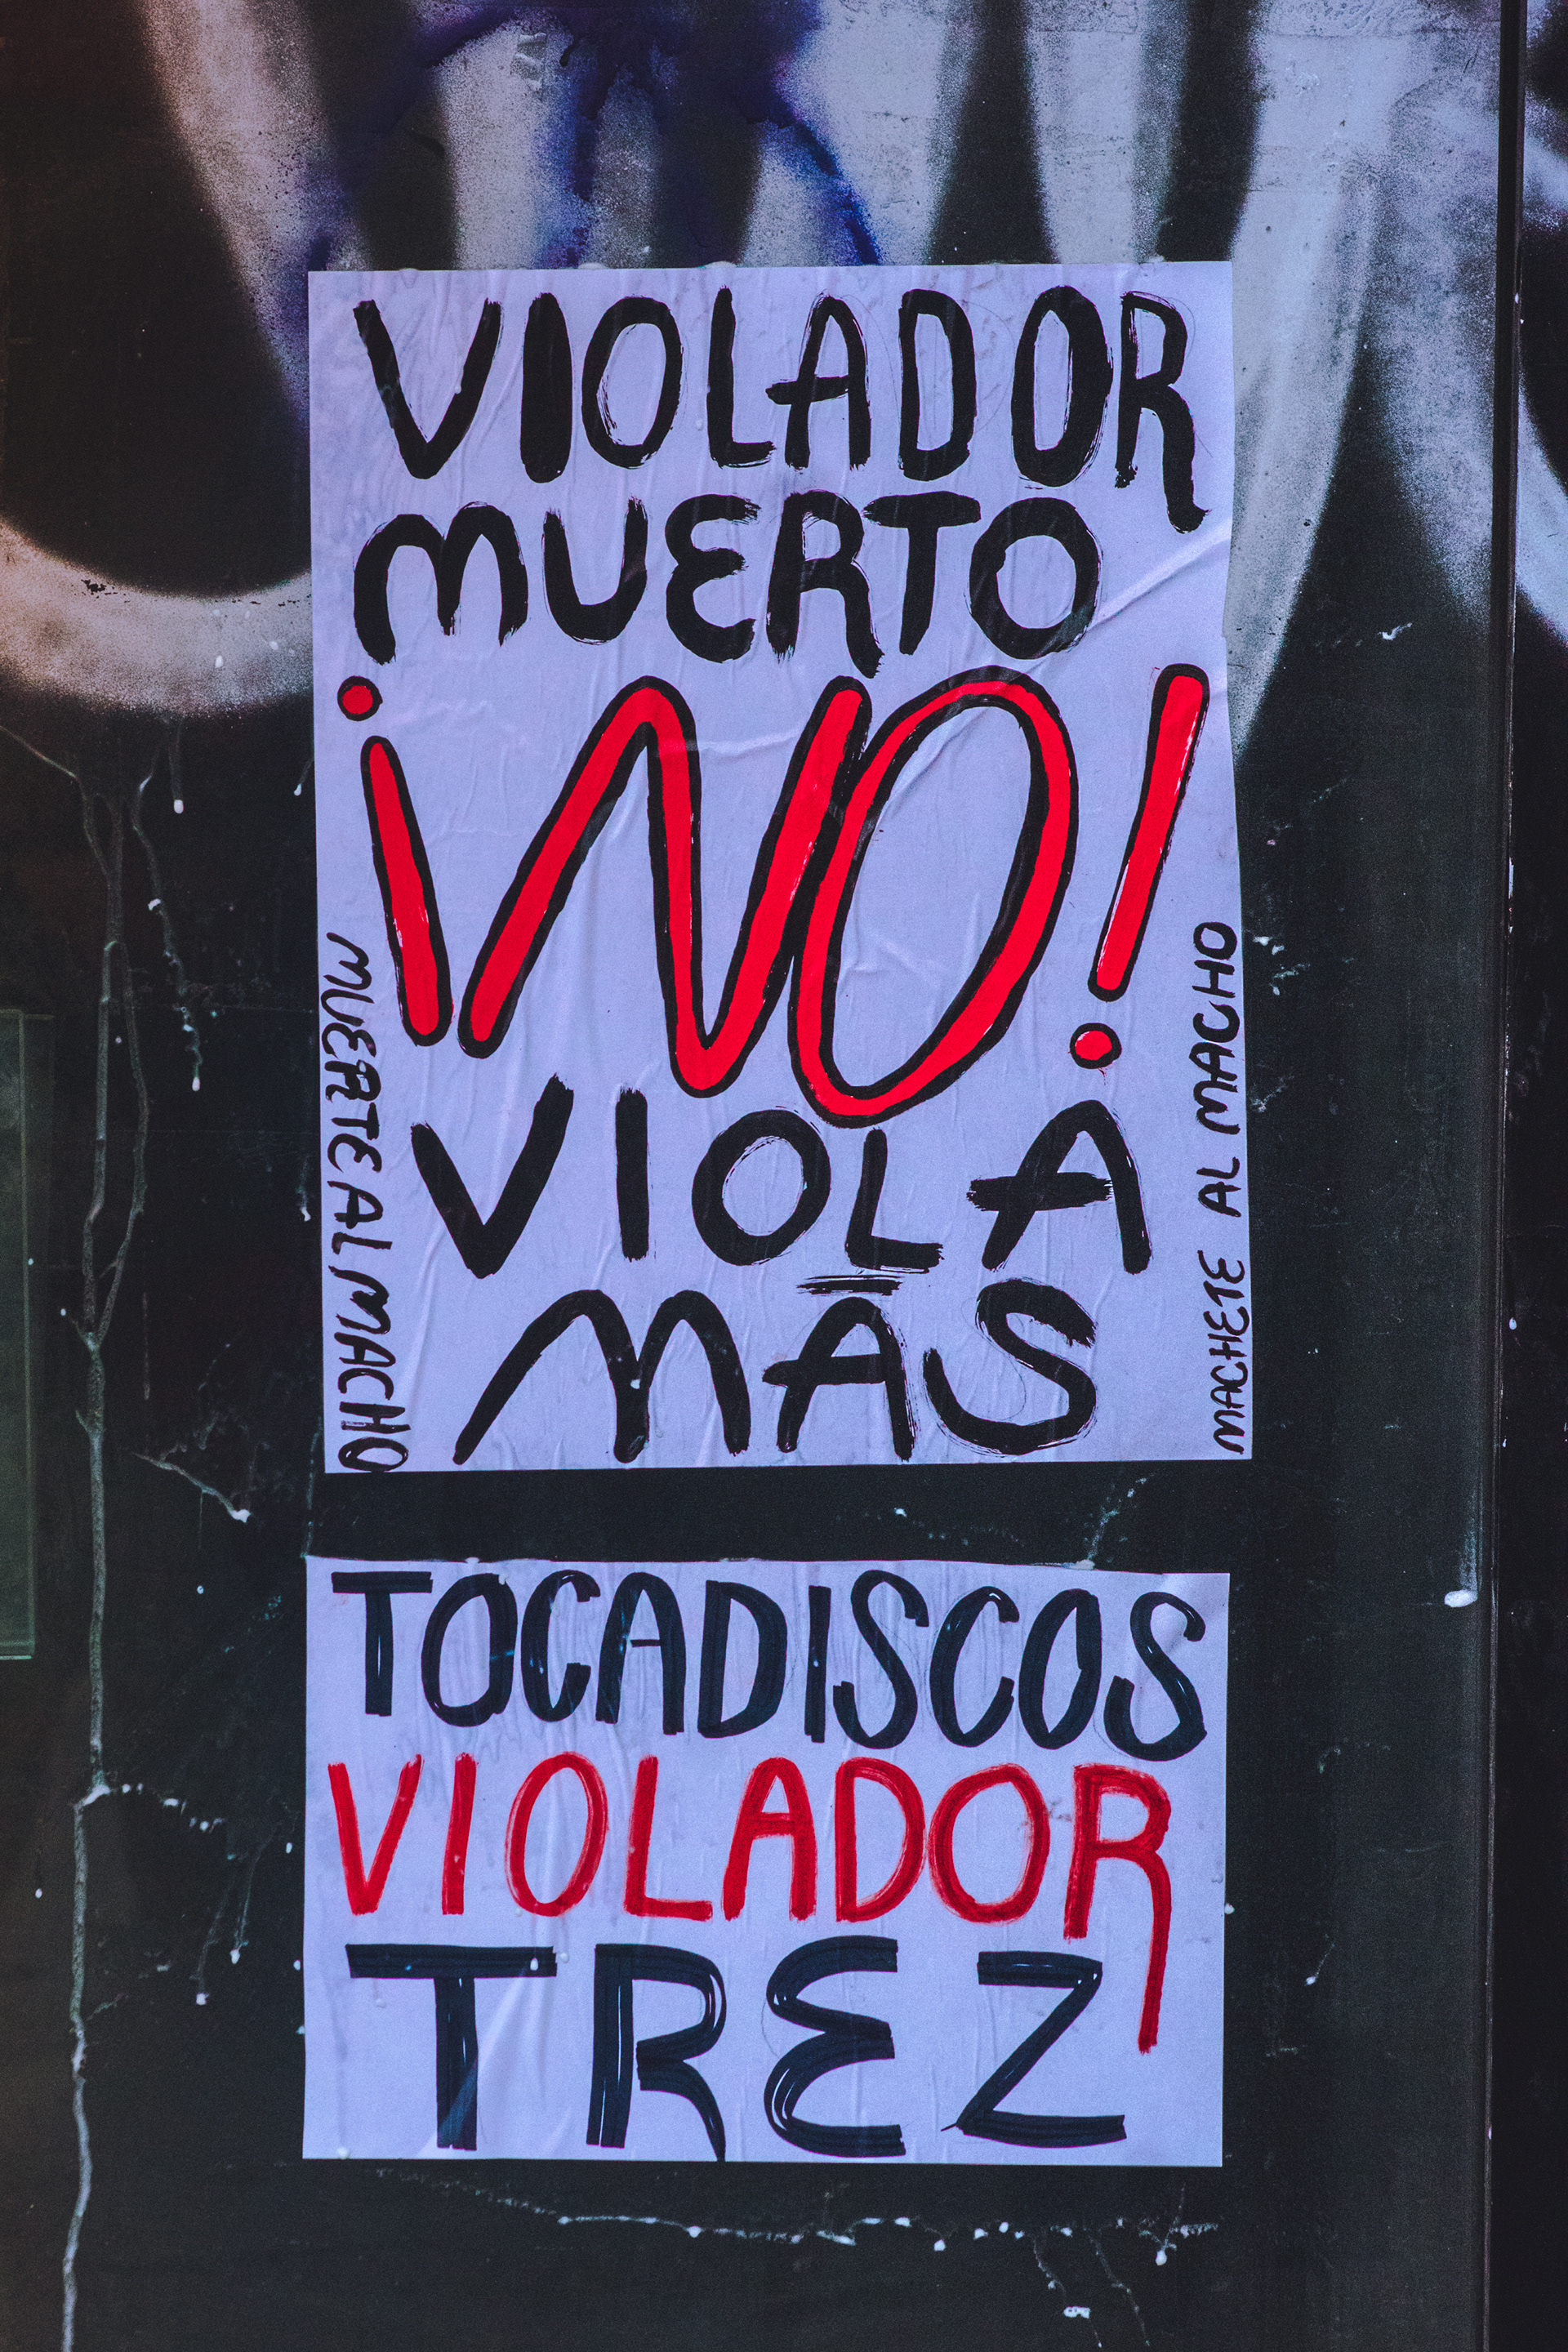 VIOLADOR
MUERTO
¡NO!
VIOLA
MÁS
MUERTE AL MACHO
MACHETE AL MACHO
TOCADISCOS
VIOLADOR
TREZ